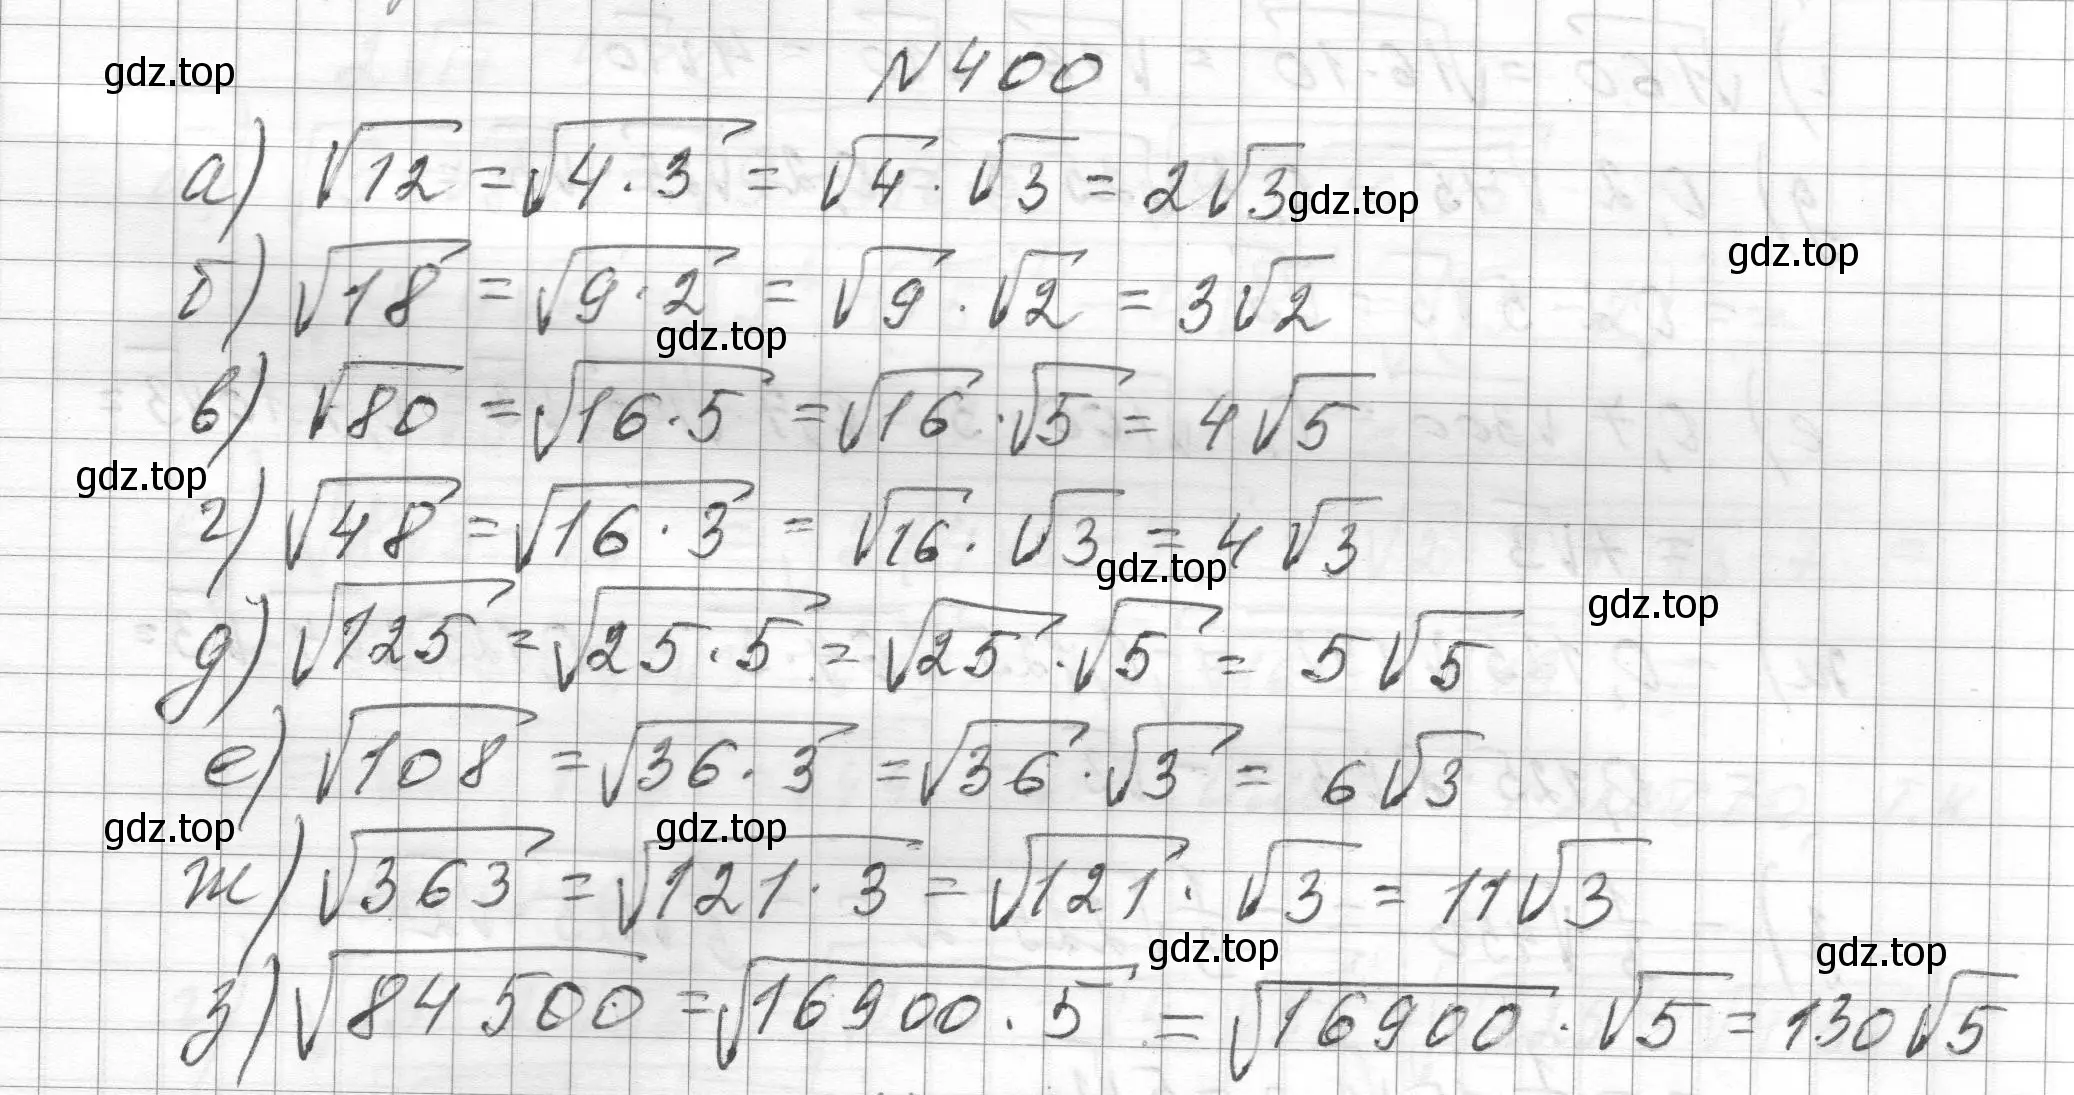 N 400
gdz.top
а) √12 = √4·3 = √4 · √3 = 2√3
gdz.top
gdz.top
б) √18 = √9·2 = √9 · √2 = 3√2
gdz.top
в) √80 = √16·5 = √16 · √5 = 4√5
gdz.top
г) √48 = √16·3 = √16 · √3 = 4√3
gdz.top
gdz.top
д) √125 = √25·5 = √25 · √5 = 5√5
е) √108 = √36·3 = √36 · √3 = 6√3
gdz.top
gdz.top
ж) √363 = √121·3 = √121 · √3 = 11√3
gdz.top
gdz.top
з) √84500 = √16900·5 = √16900 · √5 = 130√5